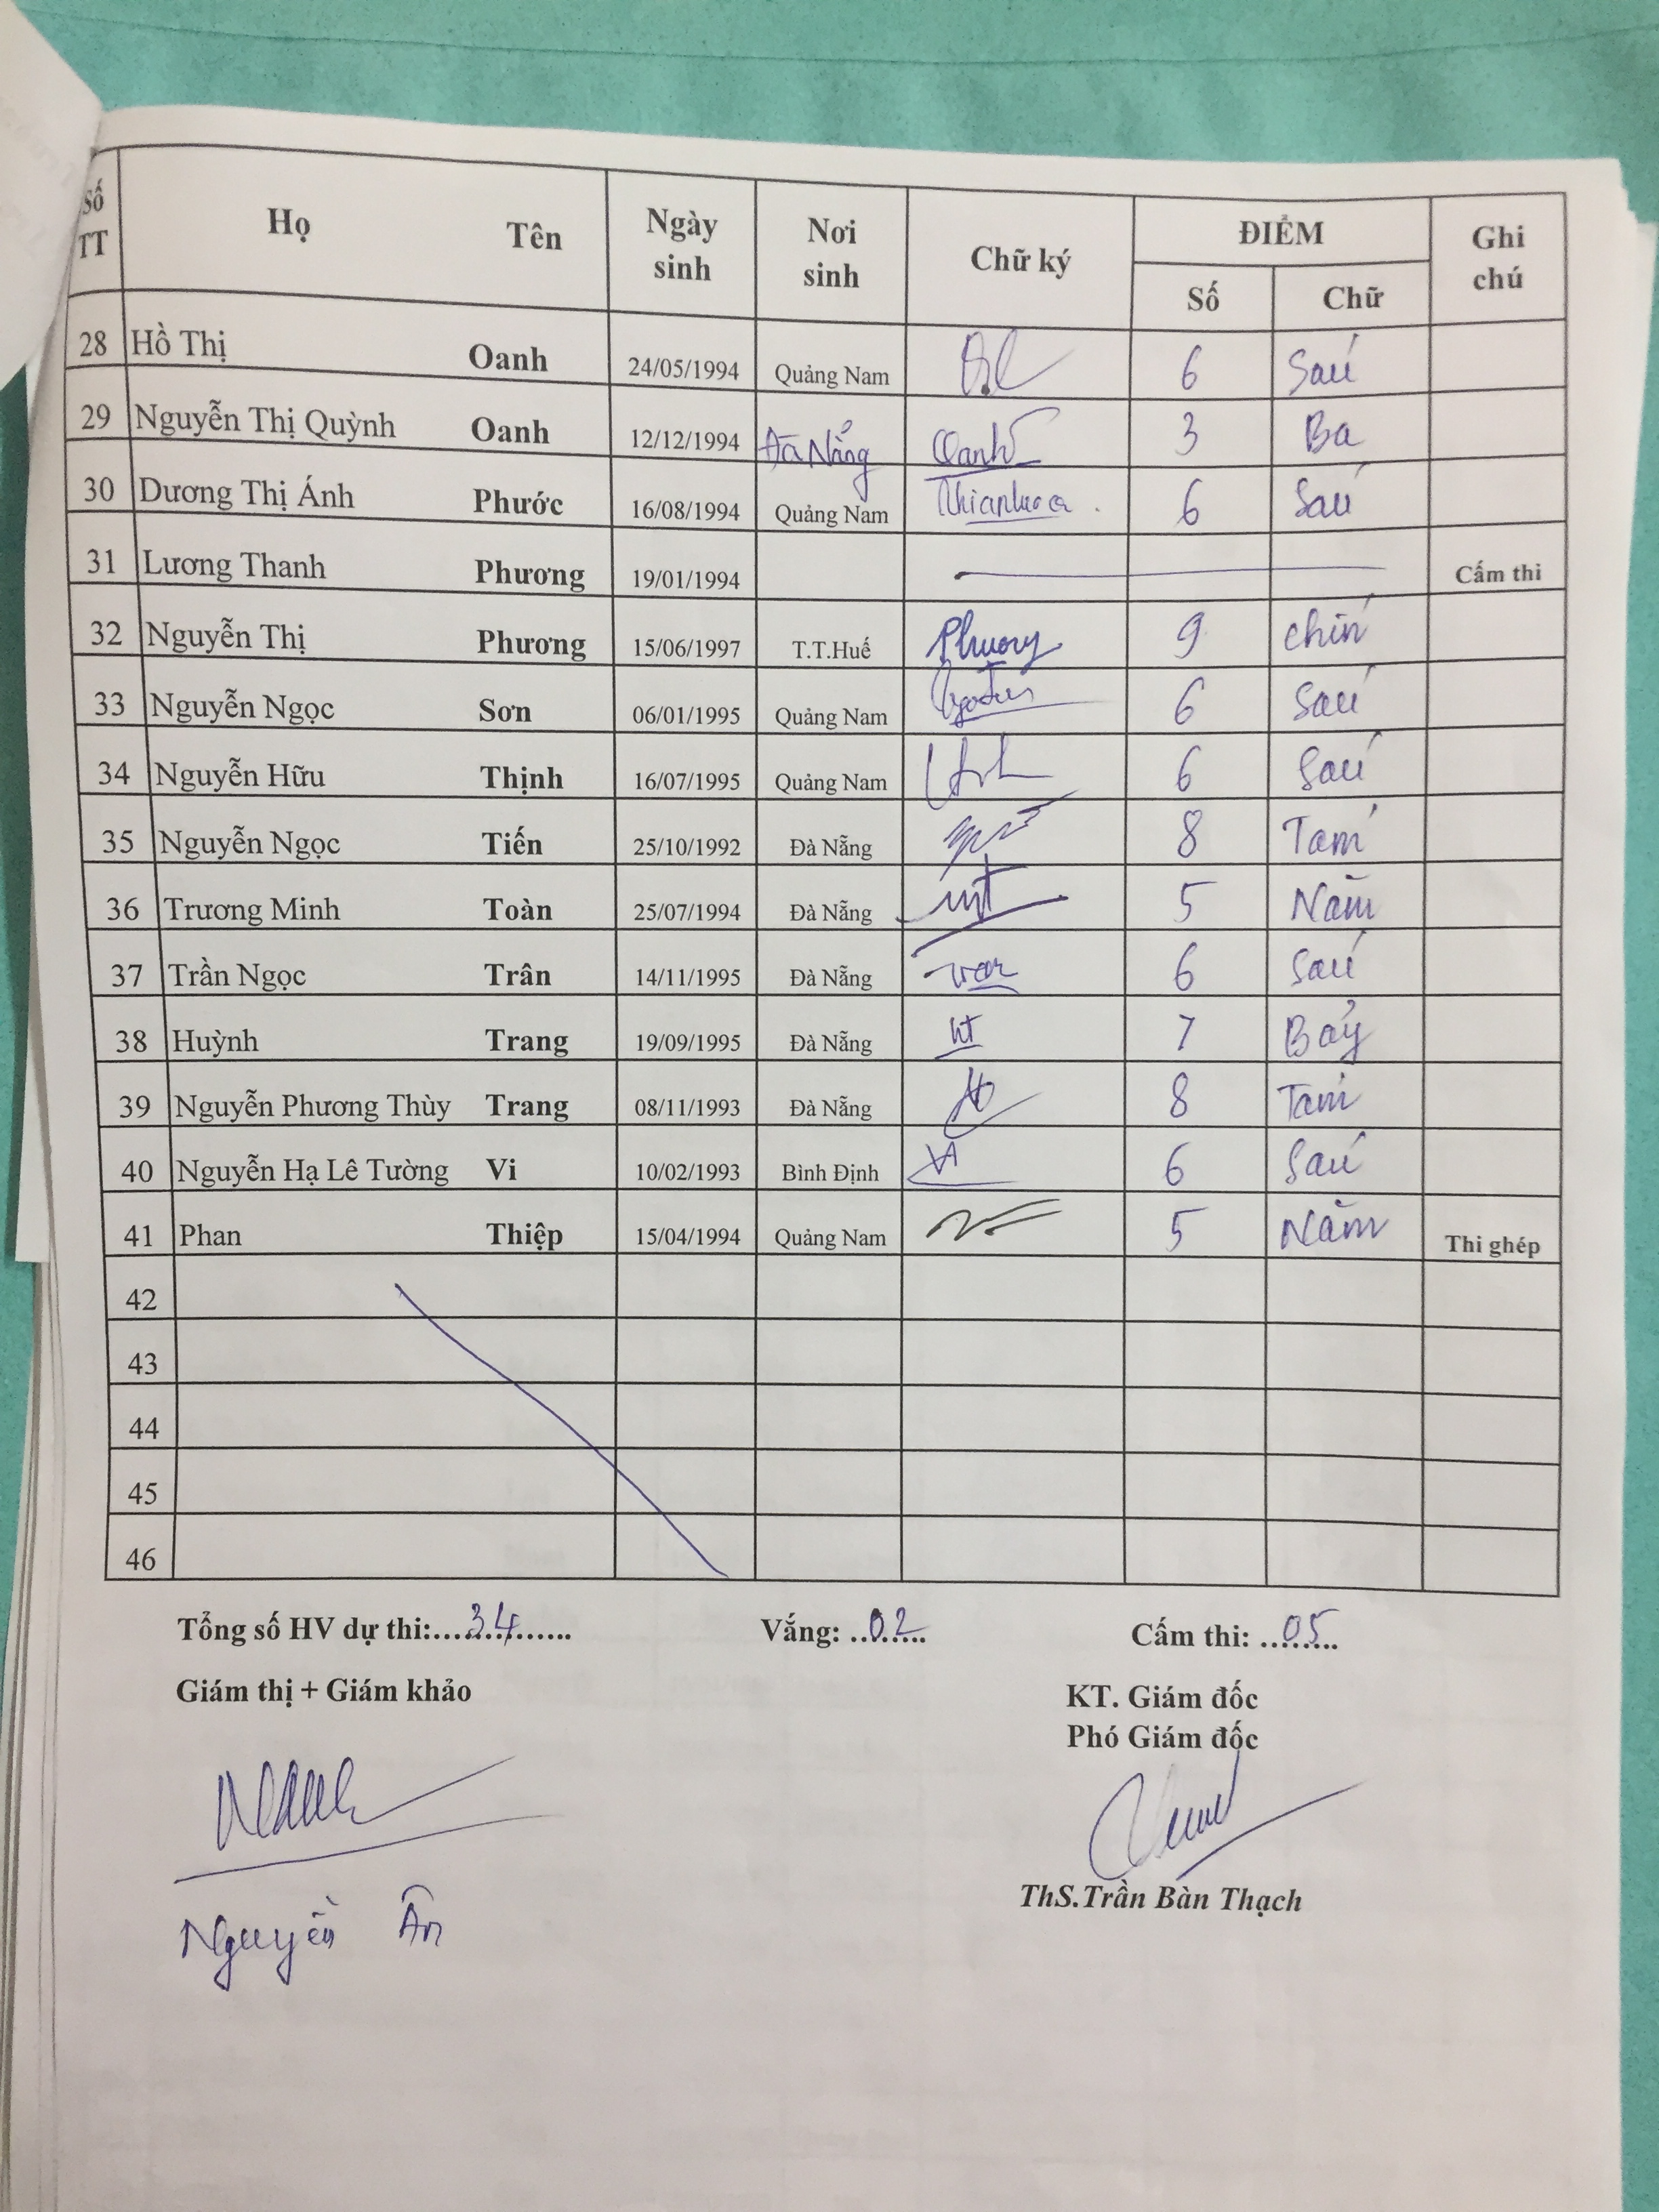 Số TT Họ Tên Ngày sinh Nơi sinh Chữ ký ĐIỂM Ghi chú
Số Chữ
28 Hồ Thị Oanh 24/05/1994 Quảng Nam 6 Sáu
29 Nguyễn Thị Quỳnh Oanh 12/12/1994 Đà Nẵng Oanh 3 Ba
30 Dương Thị Ánh Phước 16/08/1994 Quảng Nam 6 Sáu
31 Lương Thanh Phương 19/01/1994 Cấm thi
32 Nguyễn Thị Phương 15/06/1997 T.T.Huế Phương 9 chín
33 Nguyễn Ngọc Sơn 06/01/1995 Quảng Nam 6 Sáu
34 Nguyễn Hữu Thịnh 16/07/1995 Quảng Nam 6 Sáu
35 Nguyễn Ngọc Tiến 25/10/1992 Đà Nẵng 8 Tám
36 Trương Minh Toàn 25/07/1994 Đà Nẵng 5 Năm
37 Trần Ngọc Trân 14/11/1995 Đà Nẵng 6 Sáu
38 Huỳnh Trang 19/09/1995 Đà Nẵng 7 Bảy
39 Nguyễn Phương Thùy Trang 08/11/1993 Đà Nẵng 8 Tám
40 Nguyễn Hạ Lê Tường Vi 10/02/1993 Bình Định 6 Sáu
41 Phan Thiệp 15/04/1994 Quảng Nam 5 Năm Thi ghép
42
43
44
45
46
Tổng số HV dự thi:....34.... Vắng: ..02.. Cấm thi: ..05..
Giám thị + Giám khảo KT. Giám đốc
Phó Giám đốc
ThS.Trần Bàn Thạch
Nguyễn Ân